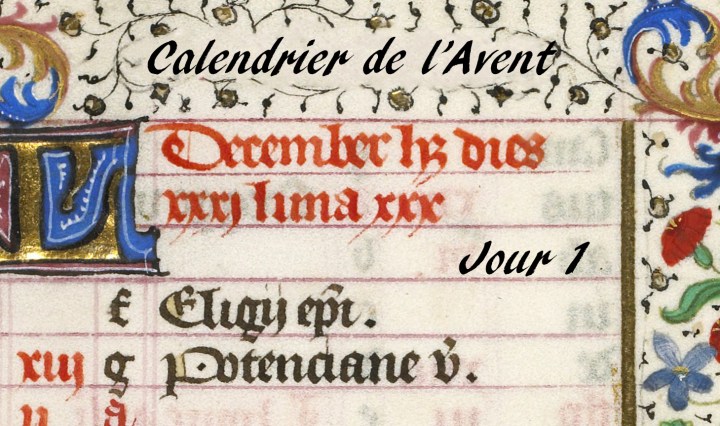 Calendrier de l'Avent
KL December hz dies
xxxj luna xxx
Jour 1
f Eligij epi.
xiij g Potenciane v.
ij a